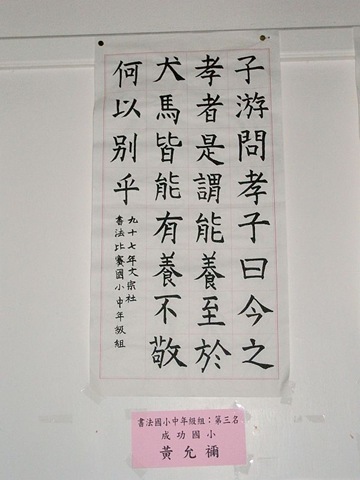 子游問孝子曰今之
孝者是謂能養至於
犬馬皆能有養不敬
何以別乎
九十七年文宗社
書法比賽國小中年級組
書法國小中年級組：第三名
成功國小
黃允禰